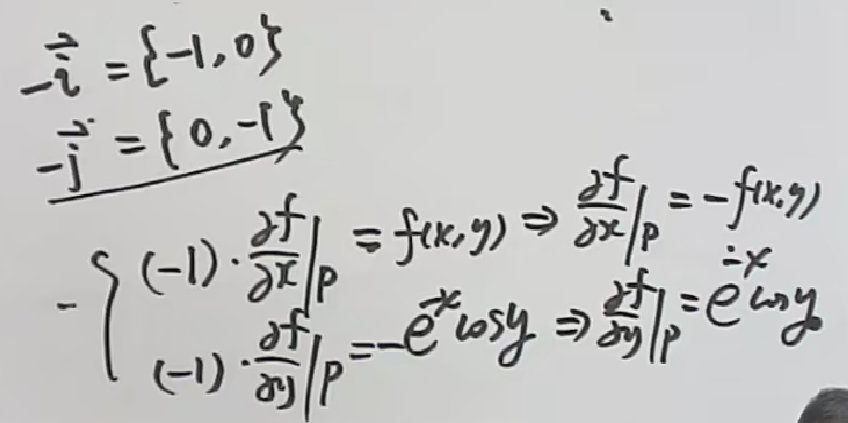 -i⃗ = {-1, 0}
-j⃗ = {0, -1}
(-1)·∂f/∂x|p = f(x,y) ⇒ ∂f/∂x|p = -f(x,y)
(-1)·∂f/∂y|p = -e^-x cosy ⇒ ∂f/∂y|p = e^-x cosy